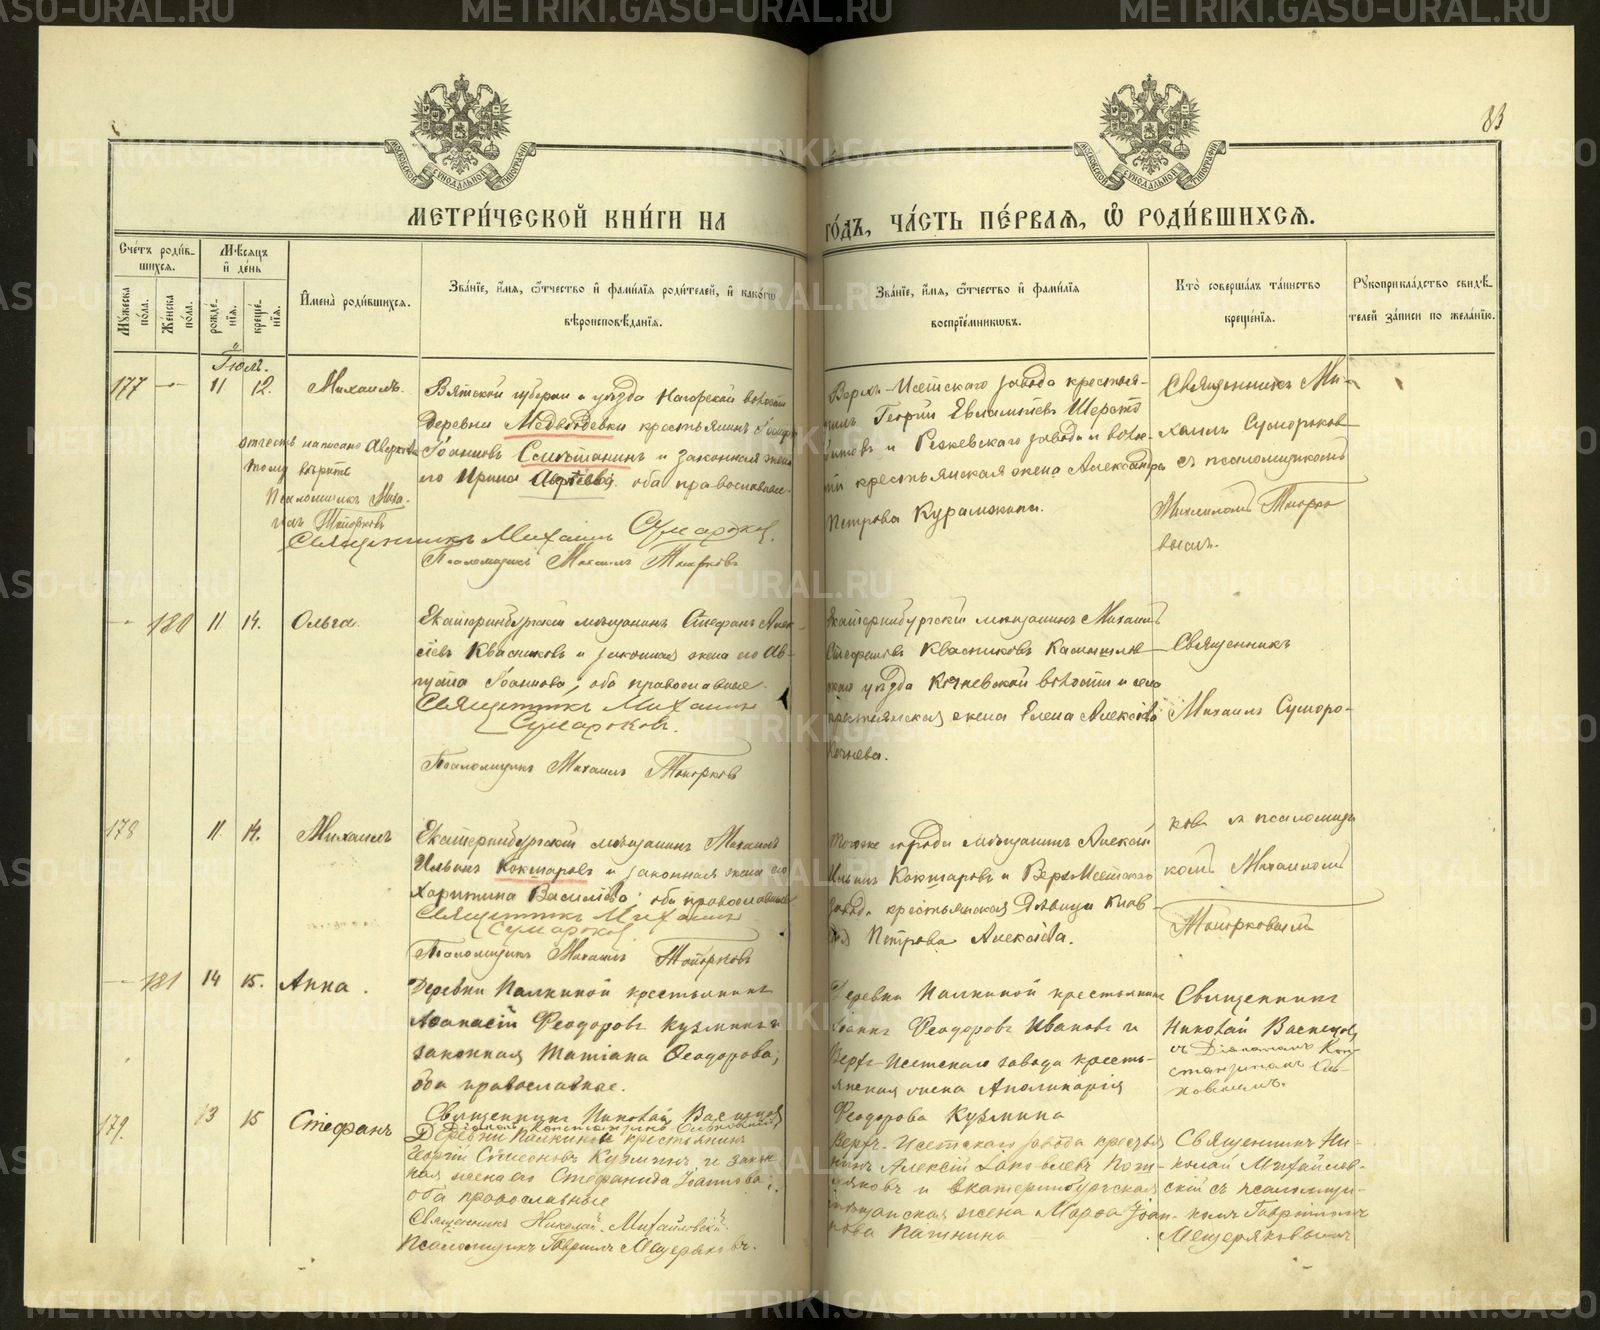 METRIKI.GASO-URAL.RU
83
МОСКОВСКОЙ СѴНОДАЛЬНОЙ ТИПОГРАФІИ
МОСКОВСКОЙ СѴНОДАЛЬНОЙ ТИПОГРАФІИ
МЕТРИ́ЧЕСКОЙ КНИ́ГИ НА ГО́ДЪ, ЧА́СТЬ ПЕ́РВАѦ, Ѽ РОДИ́ВШИХСѦ.
Сче́тъ роди́вшихся.
Му́жеска по́ла.
Же́нска по́ла.
Мѣ́сяцъ и҆ де́нь
рожде́нїя.
креще́нїя.
И҆мена̀ роди́вшихся.
Зва́нїе, и҆́мя, ѻ҆́тчество и҆ фами́лїя роди́телей, и҆ како́гѡ вѣроисповѣ́данїя.
Зва́нїе, и҆́мя, ѻ҆́тчество и҆ фами́лїя воспрїе́мникѡвъ.
Кто̀ соверша́лъ та́инство креще́нїя.
Рꙋкоприкла́дство свидѣ́телей за́писи по жела́нїю.
Іюль.
177 — 11 12. Михаилъ.
Вятской губерніи и уѣзда Нагорской волости
деревни Медвѣдевки крестьянинъ
Іоанновъ Сметанинъ и законная жена
его Ирина оба православные.
отчество написано
тому вѣрить
Псаломщикъ Михаилъ Топорковъ
Священникъ Михаилъ Сумароковъ.
Псаломщикъ Михаилъ Топорковъ
Верхъ-Исетскаго завода крестьянинъ
Георгій Евлампіевъ
и Режевскаго завода и волости
крестьянская жена Александра
Петрова
Священникъ Михаилъ
Сумороковъ
съ псаломщикомъ
Михаиломъ Топорковымъ.
— 180 11 14. Ольга.
Екатеринбургскій мѣщанинъ Стефанъ Алексѣевъ
Квасниковъ и законная жена его Августа
Іоаннова, оба православные.
Священникъ Михаилъ
Сумароковъ.
Псаломщикъ Михаилъ Топорковъ
Екатеринбургскій мѣщанинъ Михаилъ
Стефановъ Квасниковъ Камышловскаго
уѣзда Кочневской волости и села
крестьянская жена Елена Алексѣева
Кочнева.
Священникъ
Михаилъ Суморо-
178 11 14. Михаилъ
Екатеринбургскій мѣщанинъ Михаилъ
Ильинъ Кокшаровъ и законная жена его
Харитина Василіева; оба православные
Священникъ Михаилъ
Сумароковъ
Псаломщикъ Михаилъ Топорковъ
тогоже города мѣщанинъ Алексѣй
Ильинъ Кокшаровъ и Верх-Исетскаго
завода крестьянская дѣвица Клавдія
Петрова Алексѣева.
ковъ и псаломщи-
комъ Михаиломъ
Топорковымъ
— 181 14 15. Анна.
Деревни Палкиной крестьянинъ
Аѳанасій Ѳеодоровъ Кузминъ и
законная Татіана Ѳеодорова;
оба православные.
Священникъ Николай Васнецовъ
Деревни Палкиной крестьянинъ
Іоаннъ Ѳеодоровъ Ивановъ и
Верхъ-Исетскаго завода кресть-
янская жена Аполинарія
Ѳеодорова Кузмина
Священникъ
Николай Васнецовъ
съ Діакономъ Кон-
стантиномъ
179. 13 15 Стефанъ
Деревни Палкиной крестьянинъ
Георгій Симеоновъ Кузминъ и закон-
ная жена его Стефанида Іоаннова;
оба православные
Священникъ Николай Михайловскій
Псаломщикъ Гавріилъ Мещеряковъ.
Верхъ-Исетскаго завода крестья-
нинъ Алексій Іаковлевъ
и екатеринбургская
мѣщанская жена Марѳа Іоан-
нова
Священникъ Ни-
колай Михайлов-
скій съ псаломщи-
комъ Гавріиломъ
Мещеряковымъ